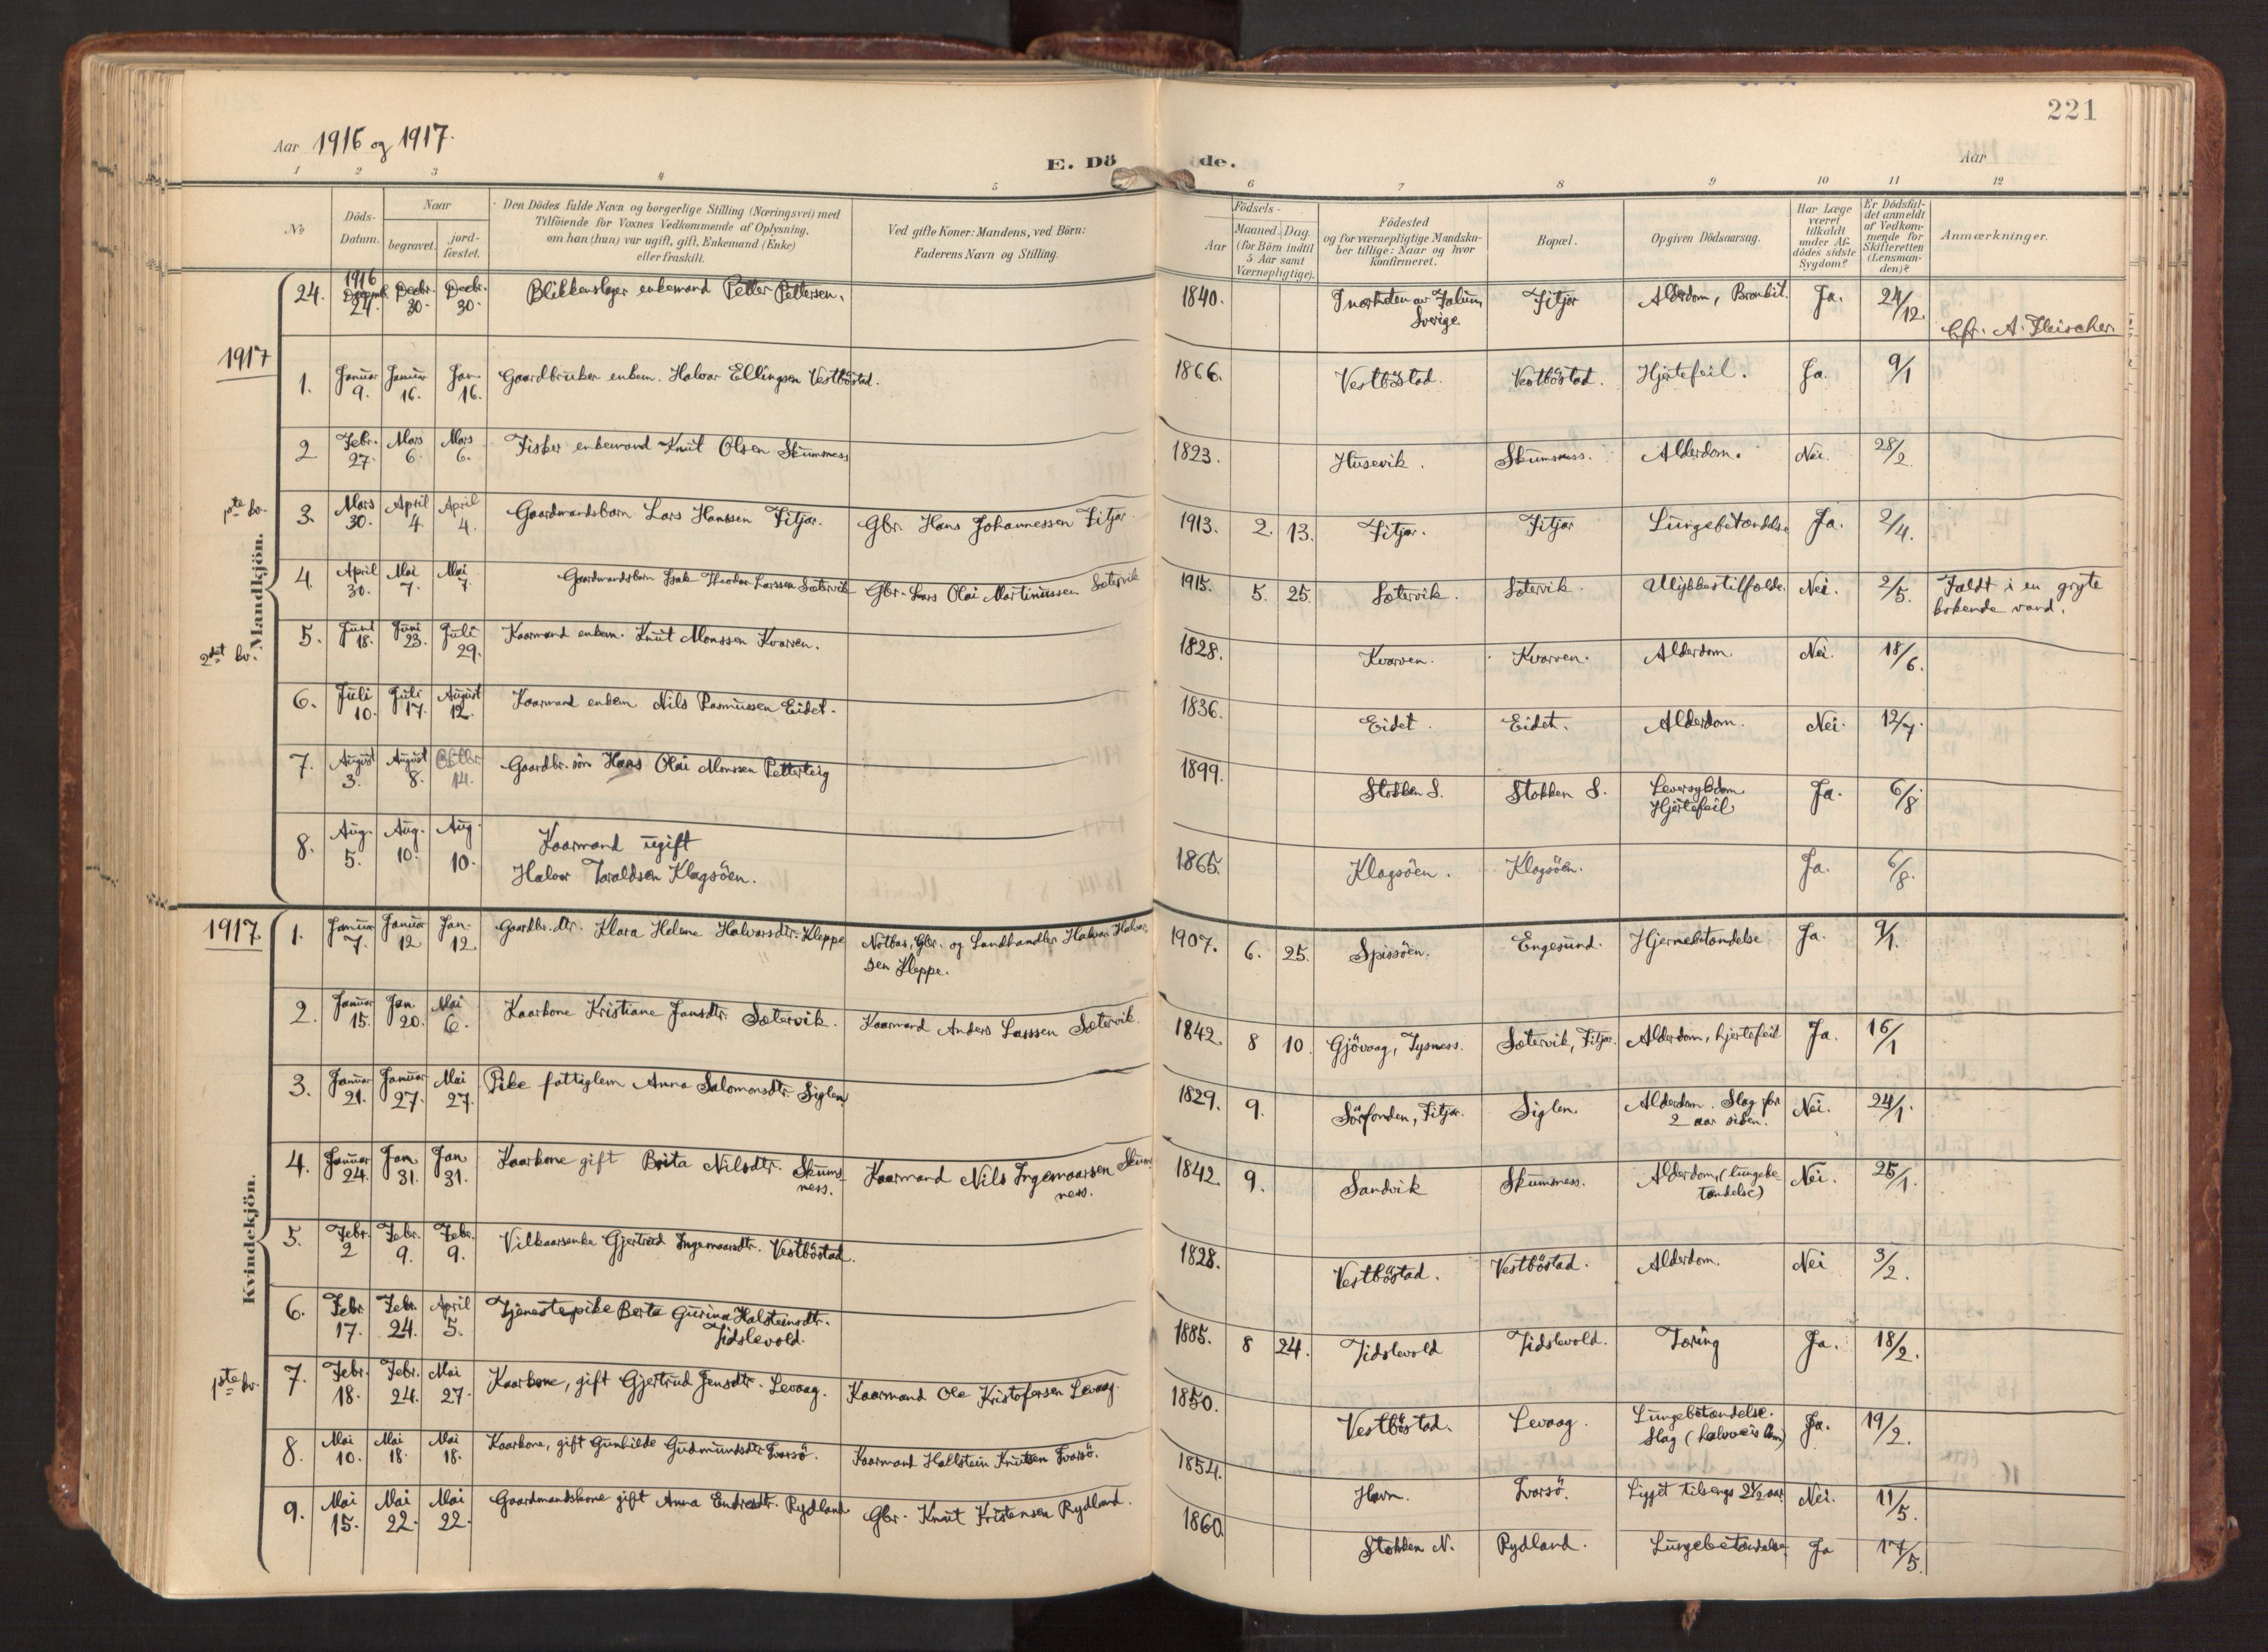 221
Aar 1916 og 1917.
E. Dö de.
Aar
1 2 3 4 5 6 7 8 9 10 11 12
No
Döds-Datum.
Naar
begravet.
jord-fæstet.
Den Dödes fulde Navn og borgerlige Stilling (Næringsvei) med
Tilföiende for Voxnes Vedkommende af Oplysning,
om han (hun) var ugift, gift, Enkemand (Enke)
eller fraskilt.
Ved gifte Koner: Mandens, ved Börn:
Faderens Navn og Stilling.
Födsels-
Aar
Maaned. Dag.
(for Börn indtil
5 Aar samt
Værnepligtige).
Födested
og for værnepligtige Mandska-
ber tillige: Naar og hvor
konfirmeret.
Bopæl.
Opgiven Dödsaarsag.
Har Læge
været
tilkaldt
under Af-
dödes sidste
Sygdom?
Er Dödsfal-
det anmeldt
af Vedkom-
mende for
Skifteretten
(Lensman-
den)?
Anmærkninger.
Mandkjön.
24. 1916 Decemb. 24. Decbr. 30. Decbr. 30. Blikkenslager enkemand Petter Pettersen. 1840. I nærheten av Falun, Sverige. Fitjar Alderdom, Bronkit. Ja. 24/12. Cfr. A. Fleischer.
1917
1. Januar 9. Januar 16. Jan. 16. Gaardbruker enkem. Halvor Ellingsen Vestböstad. 1866. Vestböstad. Vestböstad. Hjertefeil. Ja. 9/1
2 Febr. 27. Mars 6. Mars 6. Fisker enkemand Knut Olsen Skumsness 1823. Husevik. Skumsness. Alderdom. Nei. 28/2.
1ste kv.
3. Mars 30. April 4. April 4. Gaardmandsbarn Lars Hanssen Fitjar. Gbr. Hans Johannessen Fitjar. 1913. 2. 13. Fitjar. Fitjar Lungebetændelse Ja. 2/4.
4. April 30. Mai 7. Mai 7. Gaardmandsbarn Isak Theodor Larssen Sætervik Gbr. Lars Olai Martinussen Sætervik 1915. 5. 25. Sætervik. Sætervik. Ulykkestilfælde. Nei. 2/5. Faldt i en gryte kokende vand.
2det kv.
5. Juni 18. Juni 23. Juli 29. Kaarmand enkem. Knut Monssen Kvarven. 1828. Kvarven. Kvarven. Alderdom. Nei. 18/6.
6. Juli 10. Juli 17. August 12. Kaarmand enkem. Nils Rasmussen Eidet. 1836. Eidet. Eidet. Alderdom. Nei. 12/7.
7. August 3. August 8. Oktbr 14. Gaardbr. sön Hans Olai Monssen Petterteig 1899. Stokken S. Stokken S. Leversykdom Hjertefeil Ja. 6/8
8. Aug. 5. Aug. 10. Aug. 10. Kaarmand ugift
Halvor Taraldsen Klagsöen. 1865. Klagsöen. Klagsöen. Ja. 6/8.
Kvindekjön.
1917
1. Januar 7. Januar 12 Jan. 12. Gaardbr. dtr. Klara Helene Halvorsdtr. Kleppe Notbas, Gbr. og Landhandler Halvor Halvor-
sen Kleppe. 1907. 6. 25. Spissöen. Engesund. Hjernebetændelse Ja. 9/1.
2. Januar 15. Jan. 20. Mai 6. Kaarkone Kristiane Jansdtr. Sætervik. Kaarmand Anders Larssen Sætervik. 1842. 8 10. Gjövaag, Tysness. Sætervik, Fitjar. Alderdom, hjertefeil Ja. 16/1
3. Januar 21. Januar 27. Mai 27. Pike fattiglem Anna Salomonsdtr. Siglen 1829. 9. Sörfonden, Fitjar. Siglen. Alderdom. Slag for
2 aar siden. Nei. 24/1.
4. Januar 24. Jan 31. Jan 31. Kaarkone gift Brita Nilsdtr. Skums-
ness. Kaarmand Nils Ingemaarsen Skums-
ness. 1842. 9. Sandvik Skumsness. Alderdom, (lungebe-
tændelse) Nei. 25/1.
5. Febr. 2 Febr. 9. Febr. 9. Vilkaarsenke Gjertrud Ingemaarsdtr. Vestböstad. 1828. Vestböstad. Vestböstad. Alderdom. Nei 3/2.
6. Febr. 17. Febr. 24. April 5. Tjenestepike Berta Gurina Halsteinsdtr.
Tidslevold. 1885. 8 24. Tidslevold Tidslevold. Tæring Ja. 18/2.
1ste kv.
7. Febr. 18. Febr. 24. Mai 27. Kaarkone, gift Gjertrud Jensdtr. Levaag. Kaarmand Ole Kristofersen Levaag. 1850. Vestböstad. Levaag. Lungebetændelse.
Slag (halvveis lam) Ja. 19/2.
8. Mai 10. Mai 18. Mai 18. Kaarkone, gift Gunhilde Gudmundsdtr. Ivarsö. Kaarmand Hallstein Knutsen Ivarsö. 1854. Havn. Ivarsö. Ligget tilsengs 2½ aar Nei. 11/5.
9. Mai 15. Mai 22. Mai 22. Gaardmandskone gift Anna Endresdtr. Rydland Gbr. Knut Kristensen Rydland. 1860. Stokken N. Rydland. Lungebetændelse. Ja 17/5.